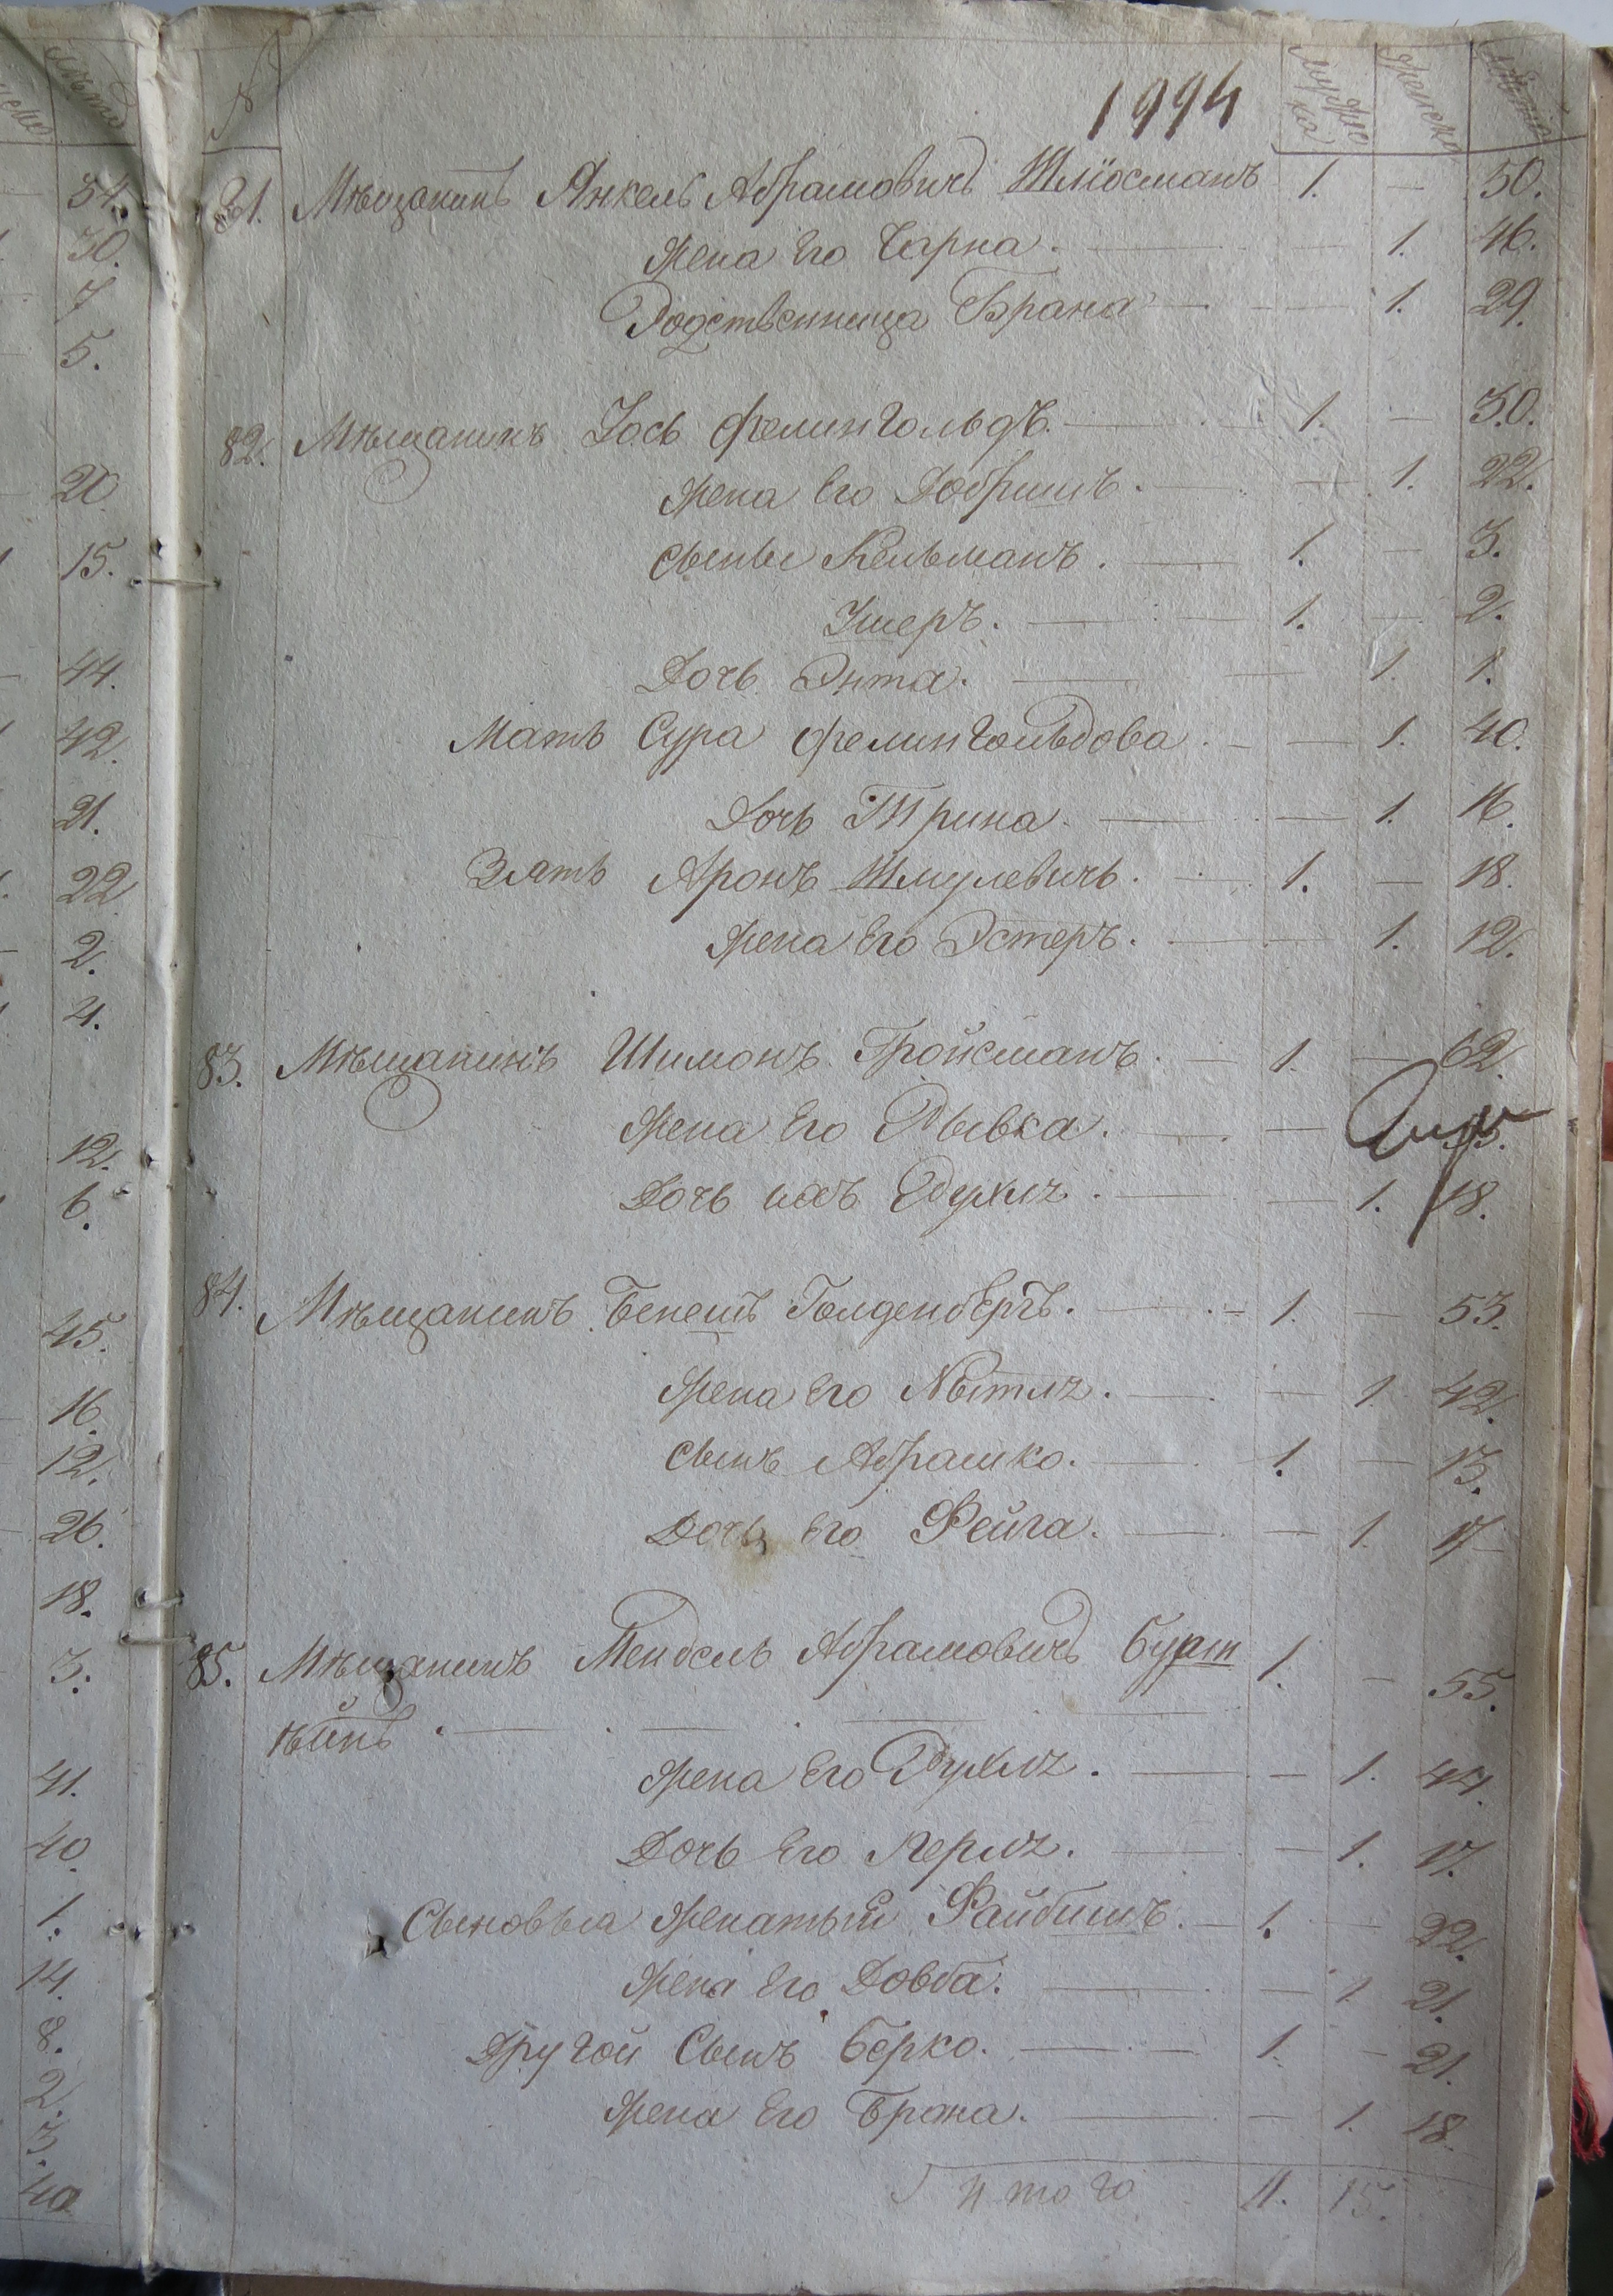 №
1994
мужеска
женска
лѣта
81. Мѣщанинъ Янкель Абрамовичъ Шлiосманъ 1. — 50.
жена его Чарна. — 1. 46.
Родственница Брана — 1. 29.
82. Мѣщанинъ Іось Фелингольдъ. 1. — 30.
жена его Добришъ. — 1. 22.
сыны Кельманъ. 1. — 3.
Ушеръ. 1. — 2.
Дочь Энта. — 1. 1.
Мать Сура Фелингольдова. — 1. 40.
Дочь Трина. — 1. 16.
Зять Аронъ Шмулевичь. 1. — 18.
жена его Эстеръ. — 1. 12.
83. Мѣщанинъ Шимонъ Гройсманъ. 1. — 62.
жена его Рывка. —
Дочь ихъ — 1. 18.
84. Мѣщанинъ Бенешъ Голденбергъ. 1. — 53.
жена его — 1. 42.
сынъ Абрашко. 1. — 13.
Дочь его Фейга. — 1. 17
85. Мѣщанинъ Мендель Абрамовичъ Бурш 1. — 55.
тѣйнъ.
жена его — 1. 44.
Дочь его — 1. 17.
Сыновья женатый Файбишъ. 1. — 22.
жена его Довба. — 1. 21.
Другой сынъ Берко. 1. — 21.
жена его Брана. — 1. 18.
Итого 11. 15.
34.
30.
7
5.
20.
15.
44.
42.
21.
22
2.
4.
12.
6.
45.
16.
12.
26.
18.
3.
41.
40.
1.
14.
8.
2.
3.
40